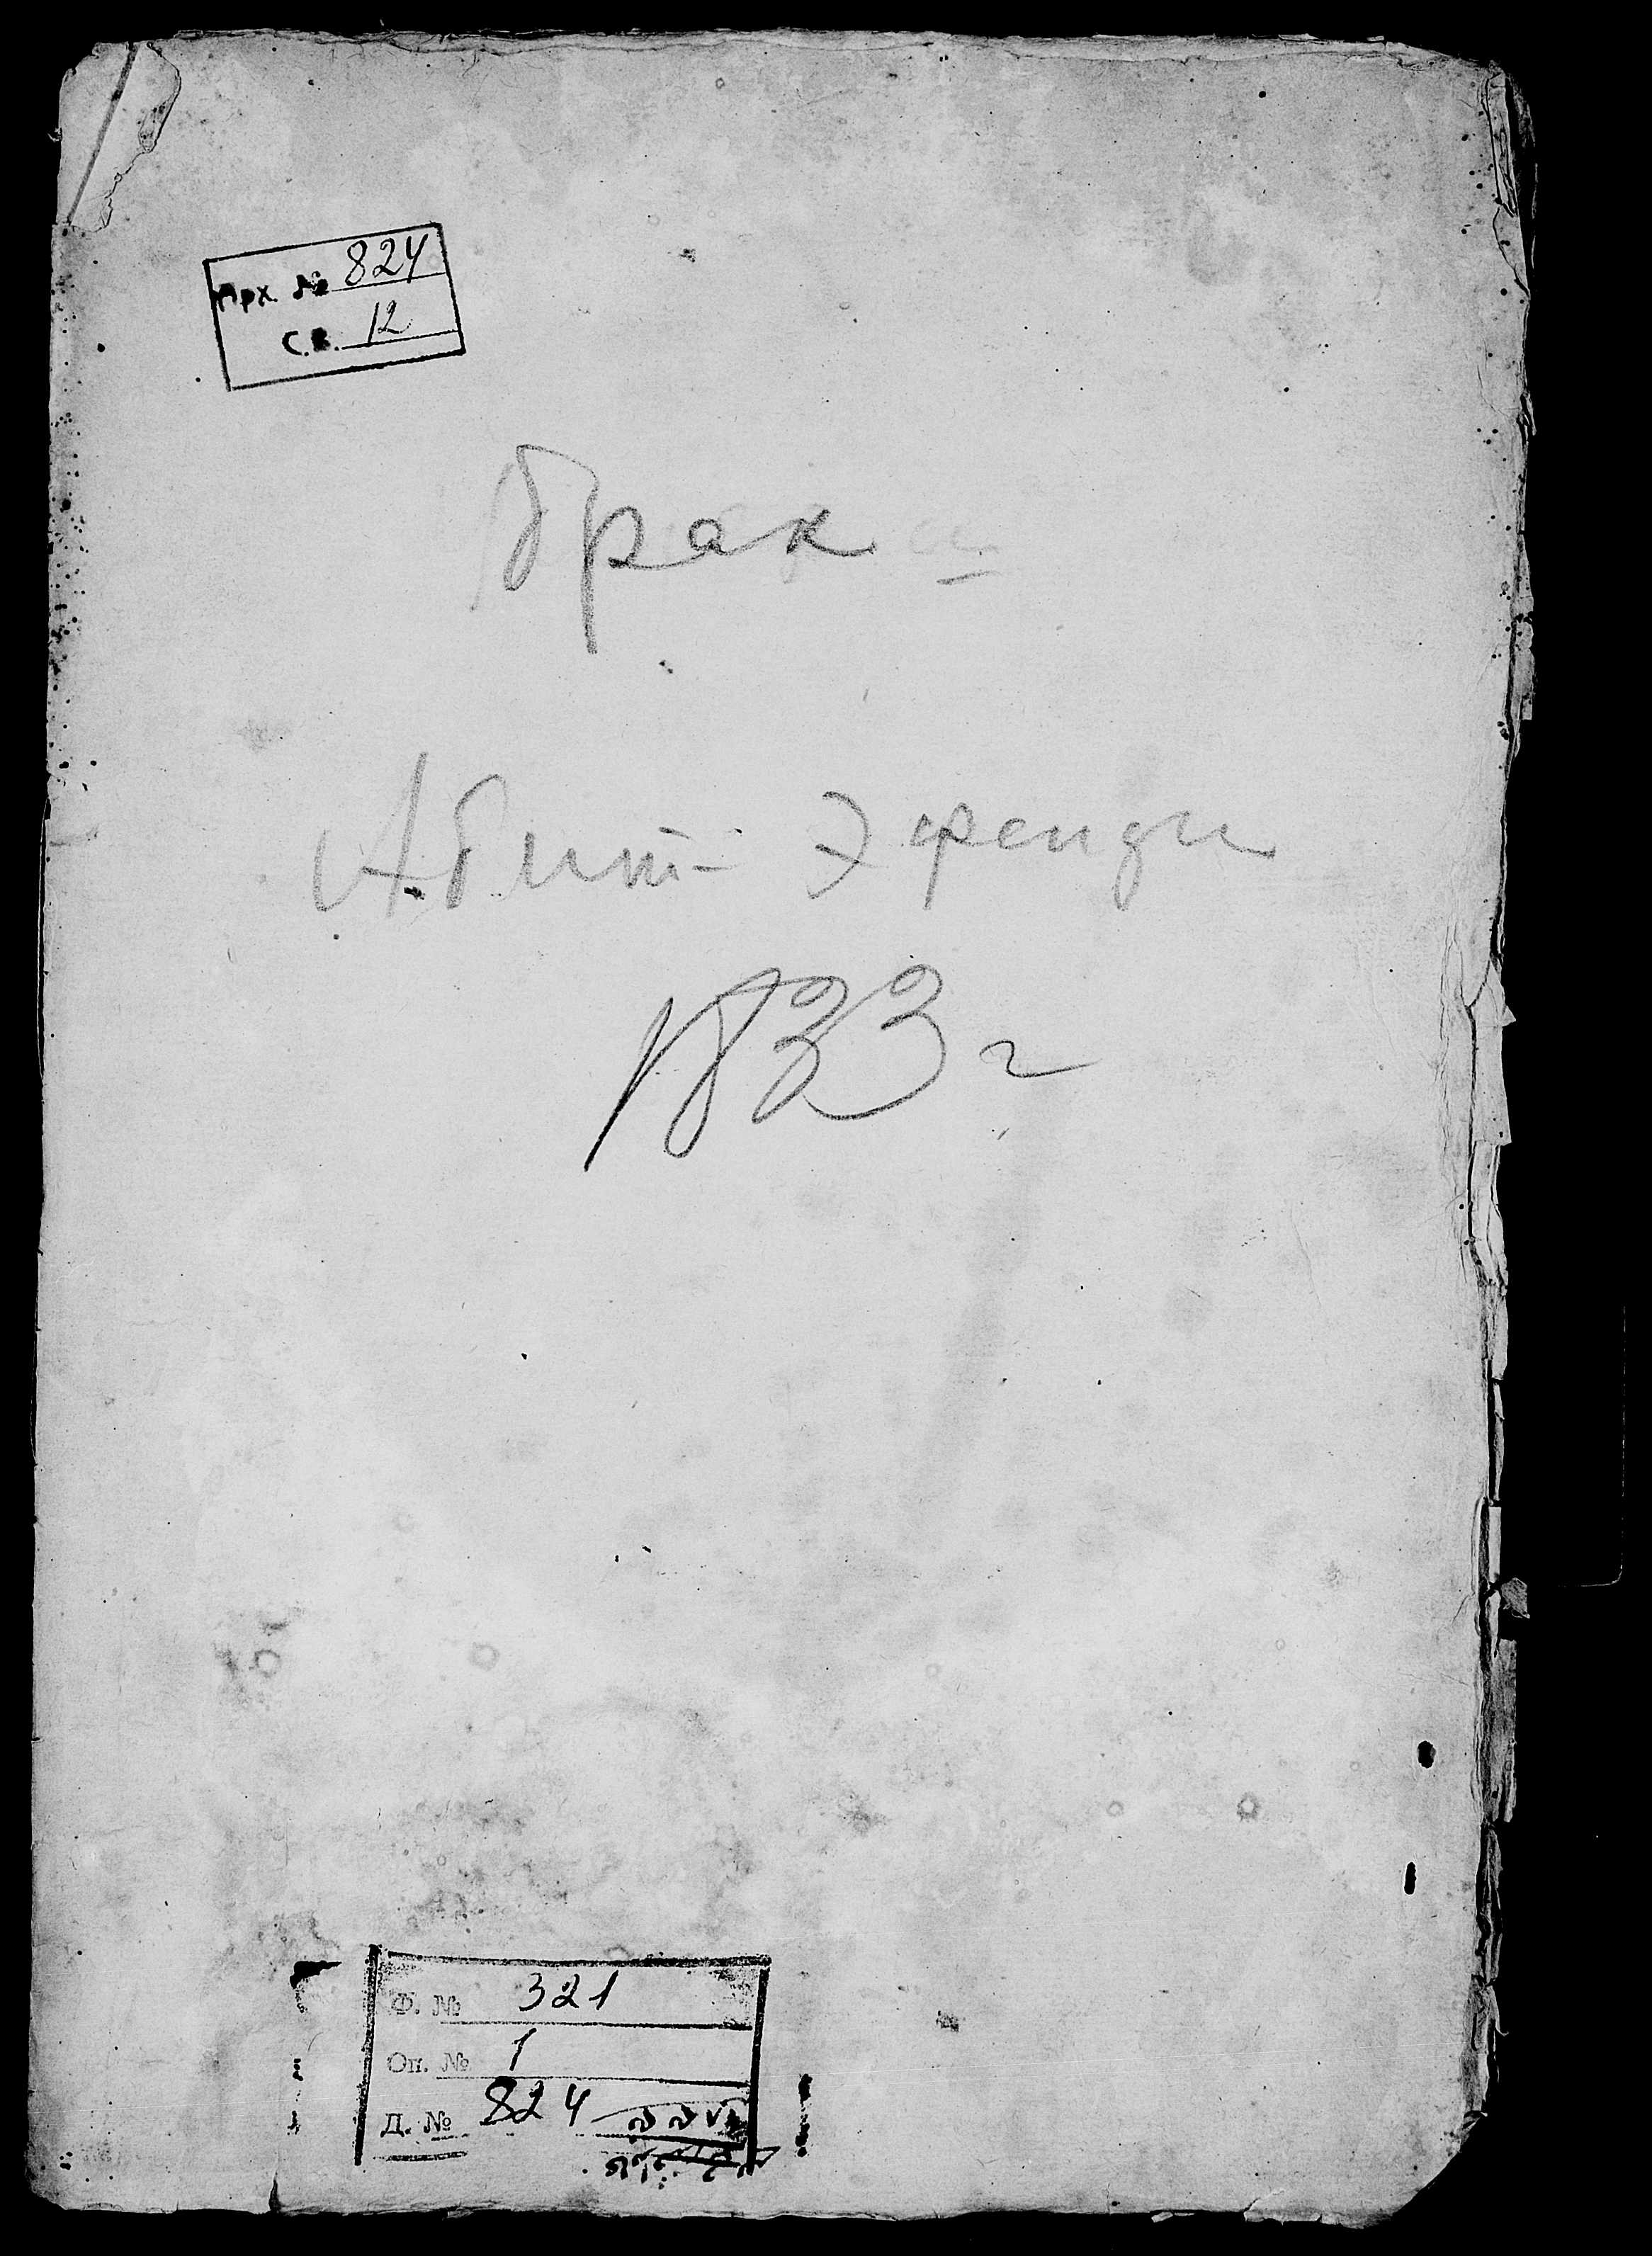 Арх. № 824
Св. 12
брак
Абит Эфенди
1833 г
Ф. № 321
Оп. № 1
Д. № 824